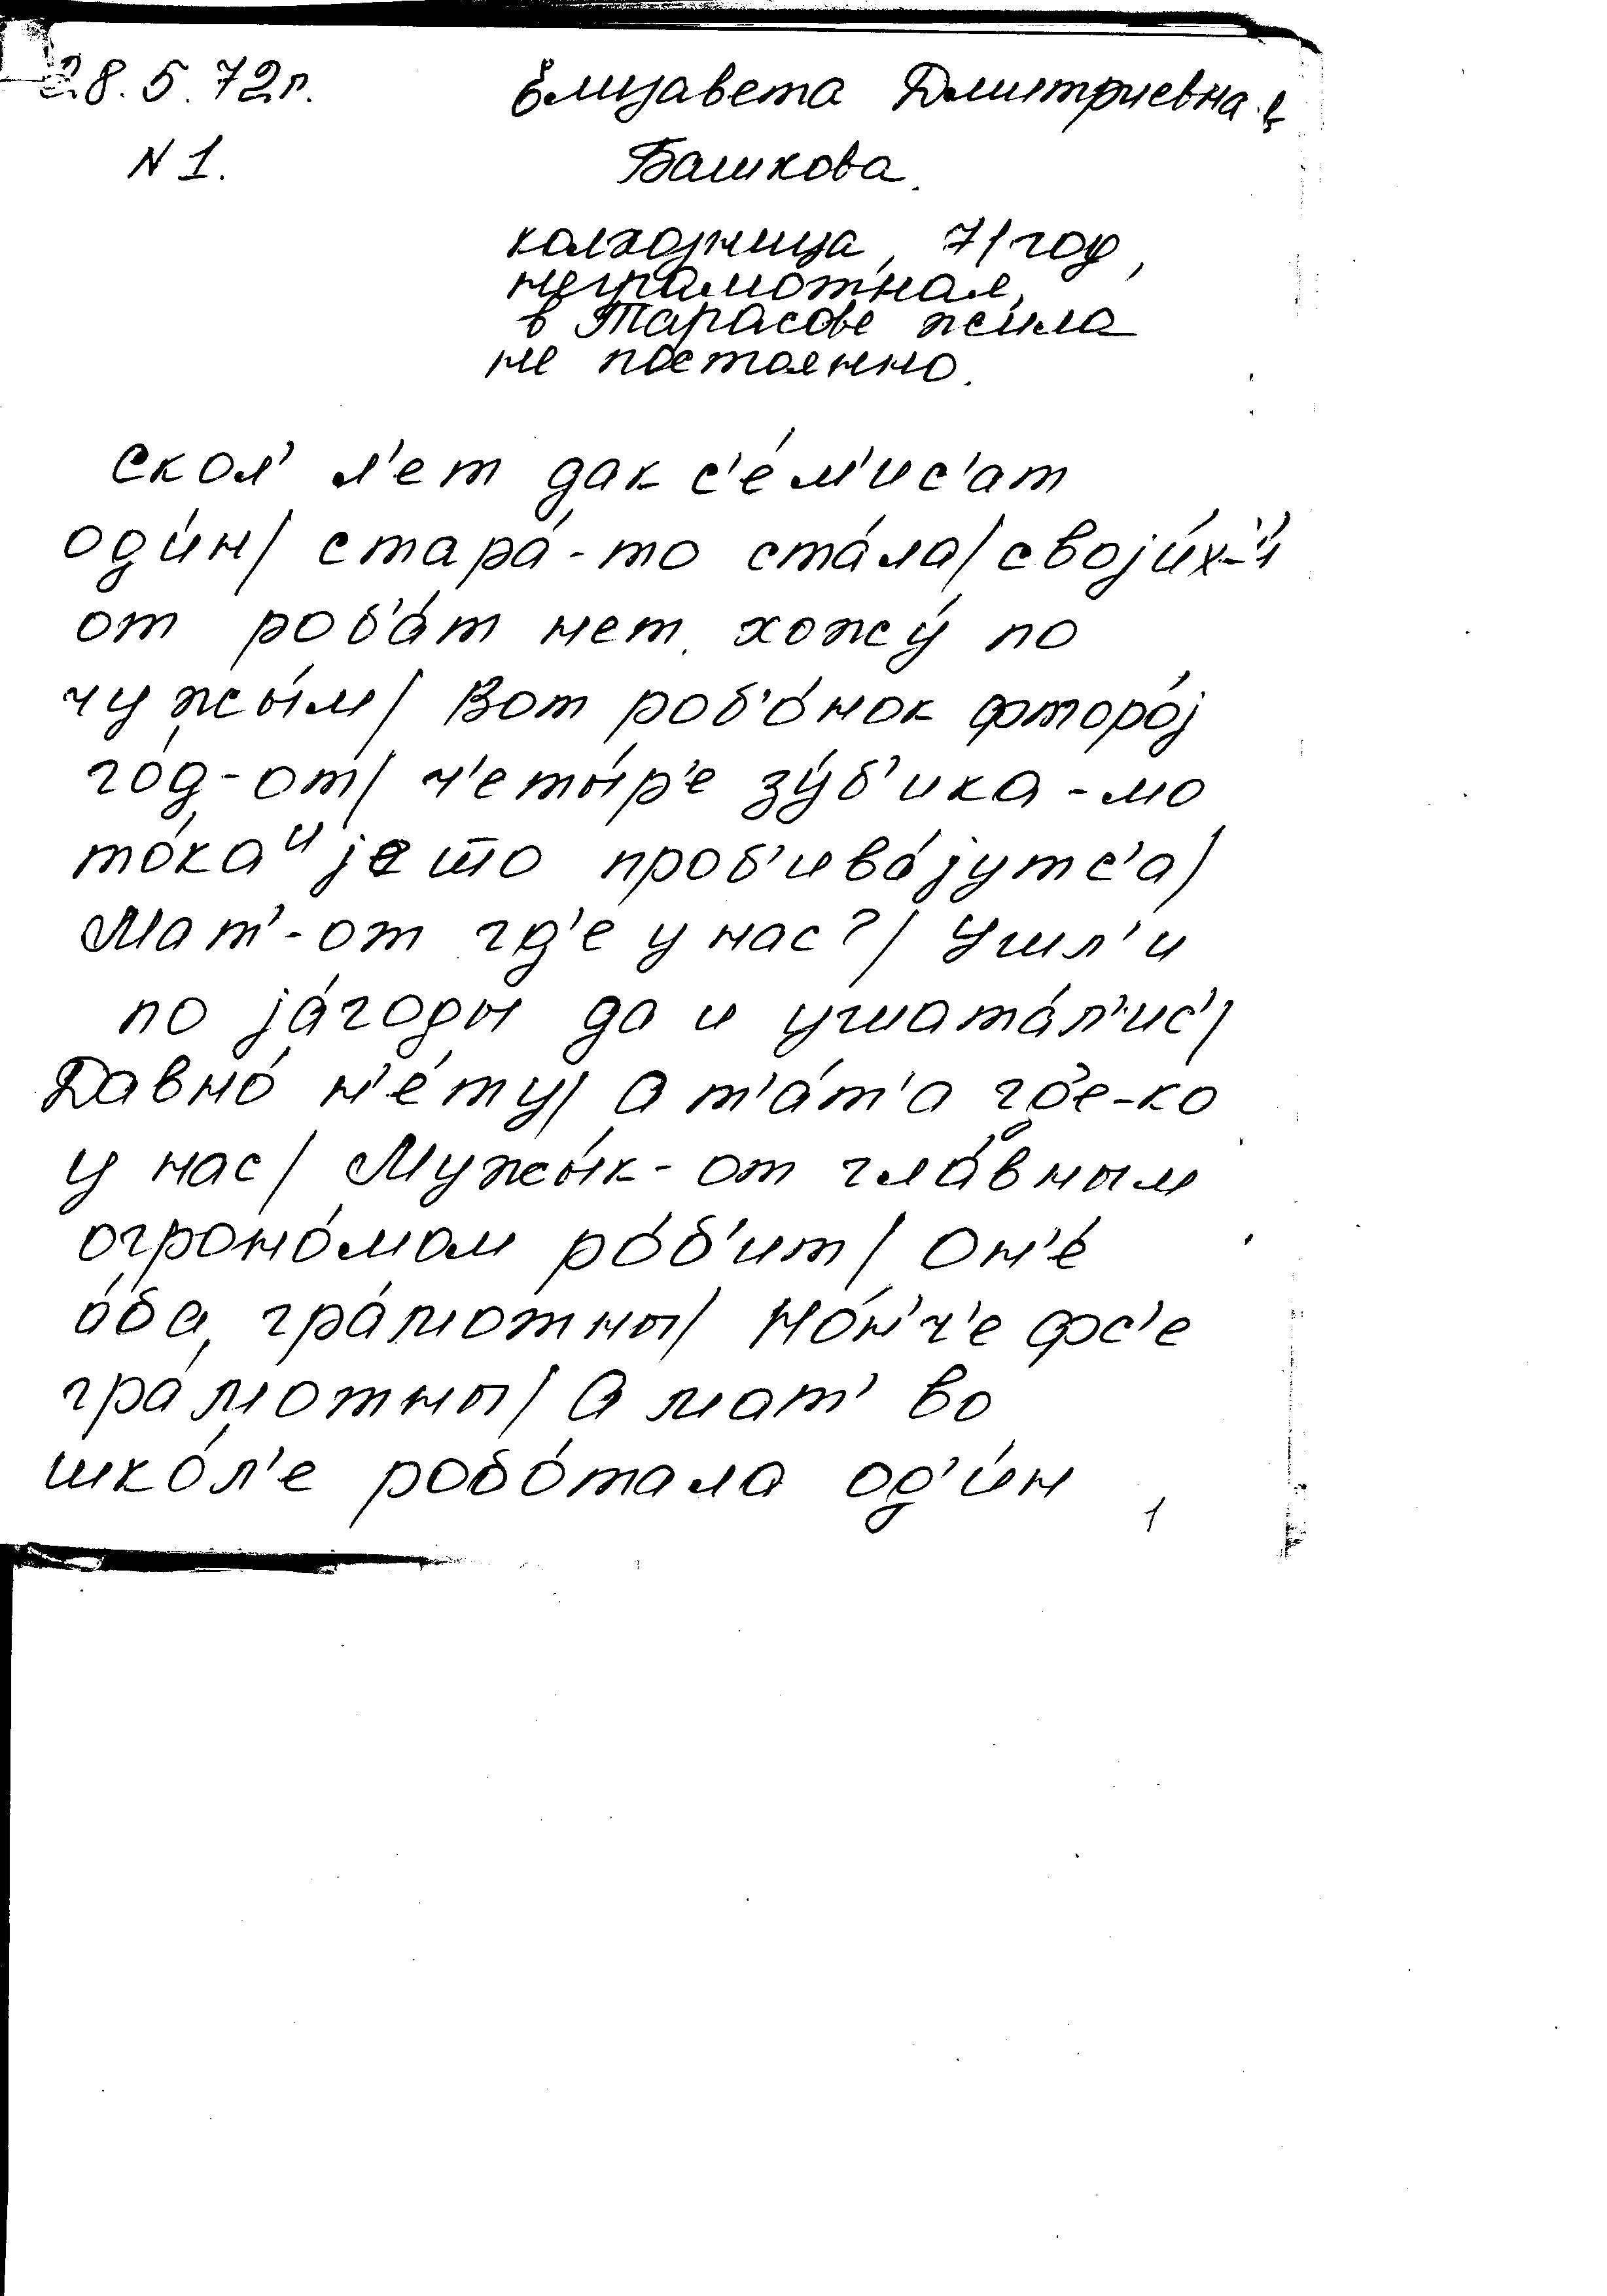 28.5.72г. Елизавета Дмитриевна
N 1. Башкова.
колхозница, 71 год,
неграмотная,
в Тарасове жила
не постоянно.
скол' л'ет дак с'е́м'ис'ат
оди́н/ стара́-то ста́ла/ своjи́х-
от роб'а́т нет. хожу́ по
чужы́м/ Вот роб'о́нок фторо́j
го́д-от/ ч'еты́р'е зу́б'ика-мо
то́ка проб'ива́jутс'а/
Мат'-от гд'е у нас?/ Ушл'и
по jа́годы да и ушата́л'ис'/
Давно́ н'е́ту/ а т'а́т'а гд'е-ко
у нас/ Мужы́к-от гла́вным
огроно́мом ро́б'ит/ Он'е́
о́ба гра́мотны/ Но́н'ч'е фс'е
гра́мотны/ а мат' во
шко́л'е робо́тала од'и́н
1